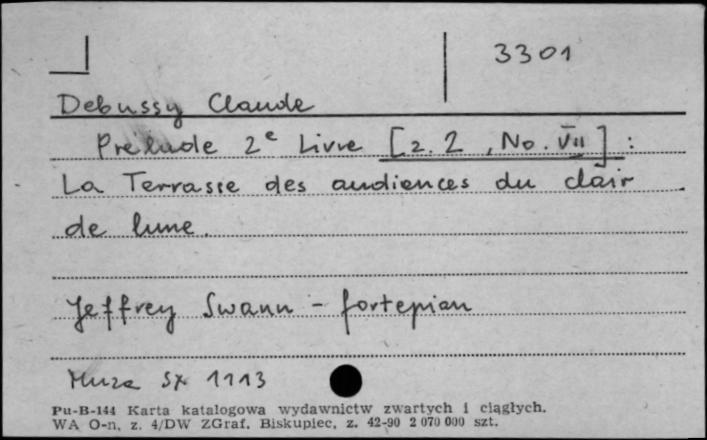 3301
Debussy Claude
Prelude 2e Livre [z. 2, No. VII] :
La Terrasse des audiences du clair
de lune.
Jeffrey Swann - fortepian
Muza SX 1113
Pu-B-144 Karta katalogowa wydawnictw zwartych i ciągłych.
WA O-n, z. 4/DW ZGraf. Biskupiec, z. 42-90 2 070 000 szt.